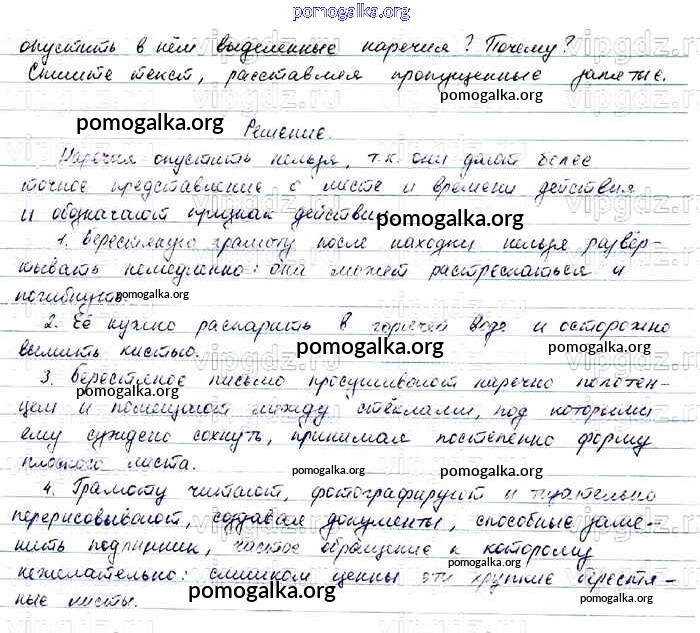 pomogalka.org
опустить в нём выделенные наречия? Почему?
Спишите текст, расставляя пропущенные запятые.
pomogalka.org
pomogalka.org
Решение.
Наречия опустить нельзя, т.к. они дают более
точное представление о месте и времени действия
и обозначают признак действия.
pomogalka.org
1. Берестяную грамоту после находки нельзя развёр-
тывать немедленно: она может растрескаться и
погибнуть.
pomogalka.org
2. Её нужно распарить в горячей воде и осторожно
вымыть кистью.
pomogalka.org
pomogalka.org
3. Берестяное письмо просушивают наречно полотен-
pomogalka.org
цем и помещают между стёклами, под которыми
ему суждено сохнуть, принимая постепенно форму
плоского листа.
pomogalka.org
pomogalka.org
4. Грамоту читают, фотографируют и тщательно
перерисовывают, создавая документы, способные заме-
pomogalka.org
нить подлинник, частое обращение к которому
нежелательно: слишком ценны эти хрупкие берестя-
ные листы.
pomogalka.org
pomogalka.org